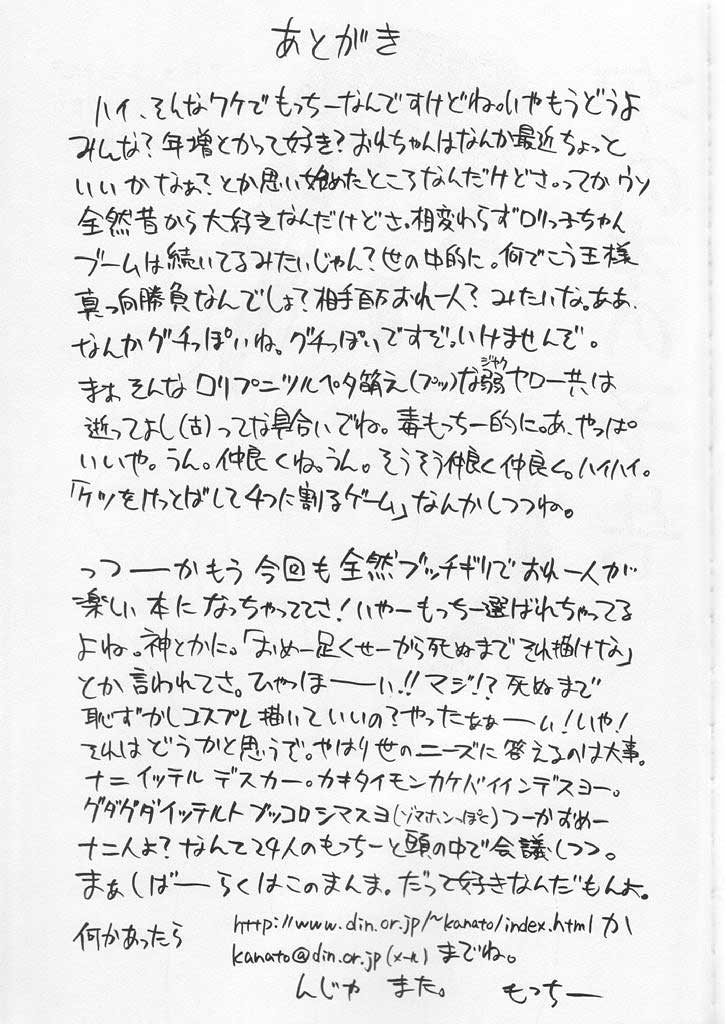 あとがき
ハイ、そんなワケでもっちーなんですけどね。いやもうどうよ
みんな?年増とかって好き?おれちゃんはなんか最近ちょっと
いいかなぁ?とか思い始めたところなんだけどさ。ってかウソ
全然昔から大好きなんだけどさ。相変わらずロリっ子ちゃん
ブームは続いてるみたいじゃん?世の中的に。何でこう王様
真っ向勝負なんでしょ?相手百万おれ一人?みたいな。ああ、
なんかグチっぽいね。グチっぽいですぞ。いけませんぞ。
まぁそんなロリプニツルペタ萌え(プッ)な弱ヤロー共は
ジャク
逝ってよし(古)ってな具合いでね。毒もっちー的に。あ、やっぱ
いいや。うん。仲良くね。うん。そうそう仲良く仲良く。ハイハイ。
「ケツをけっとばして4つに割るゲーム」なんかしつつね。
っつーーかもう今回も全然ブッチギリでおれ一人が
楽しい本になっちゃっててさ!いやーもっちー選ばれちゃってる
よね。神とかに。「おめー足くせーから死ぬまでそれ描けな」
とか言われてさ。ひゃっほーーい!!マジ!?死ぬまで
恥ずかしコスプレ描いていいの?やったぁぁーーい!いや!
それはどうかと思うで。やはり世のニーズに答えるのは大事。
ナニイッテルデスカー。カキタイモンカケバイインデスヨー。
グダグダイッテルトブッコロシマスヨ(ゾマホンっぽく)つーかおめー
ナニ人よ?なんて24人のもっちーと頭の中で会議しつつ。
まぁしばーーらくはこのまんま。だって好きなんだもんよ。
何かあったら http://www.din.or.jp/~kanato/index.html か
kanato@din.or.jp(メール)までね。
んじゃ また。 もっちー